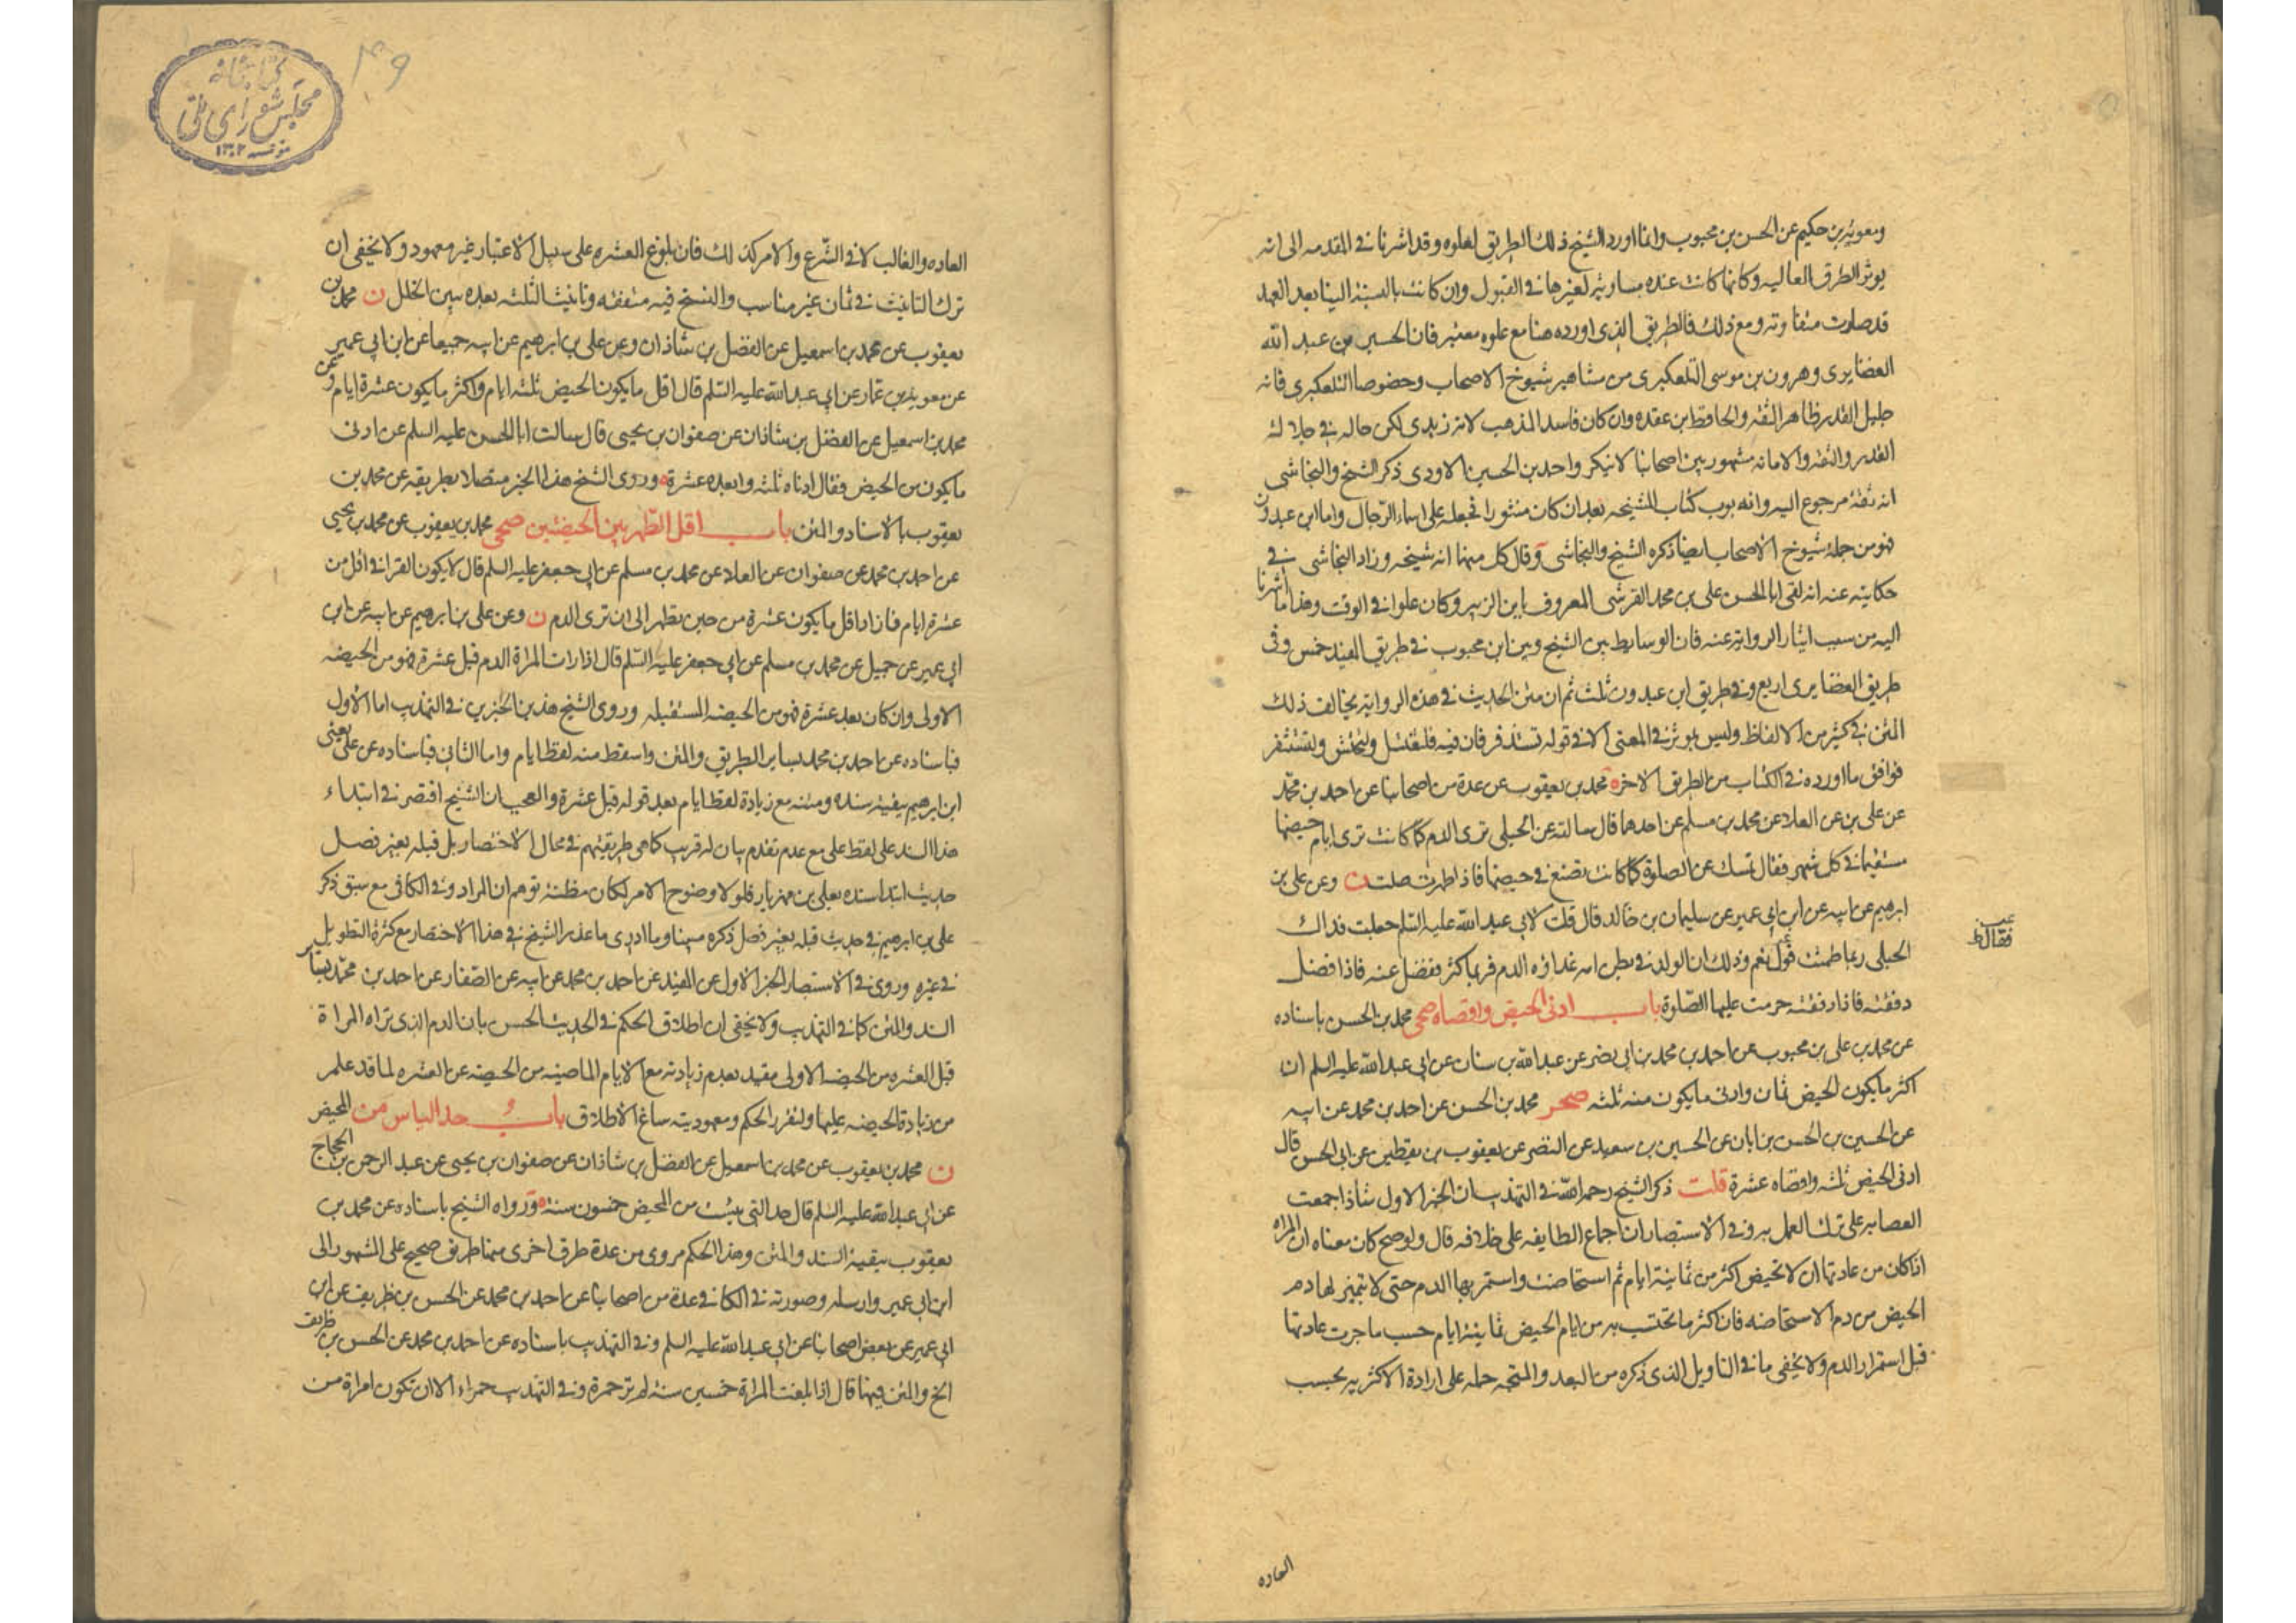 ومعوية بن حكيم عن الحسن بن محبوب وانما اورد الشيخ ذلك الطريق لعلوه وقد اشرنا في المقدمه الى انه
يوثر الطرق العاليه وكانها كانت عنده مساوية لغيرها في القبول وان كانت بالنسبة الينا بعد العهد
قد صارت متفاوته ومع ذلك فالطريق الذي اورده هنا مع علوه معتبر فان الحسين بن عبد الله
الغضايري وهرون بن موسى التلعكبري من مشاهير شيوخ الاصحاب وخصوصا التلعكبري فانه
جليل القدر ظاهر الثقه والحافظ ابن عقده وان كان فاسد المذهب لانه زيدي لكن حاله في جلاله
القدر والثقه والامانه مشهور بين اصحابنا لا ينكر واحمد بن الحسين الاودي ذكر الشيخ والنجاشي
انه ثقة مرجوع اليه وانه بوب كتاب المشيخه بعد ان كان منثورا فجعله على اسماء الرّجال واما ابن عبدون
فهو من جملة شيوخ الاصحاب ايضا ذكره الشيخ والنجاشي وقال كل منهما انه شيخه وزاد النجاشي في
حكايته عنه انه لقى ابا الحسن على بن محمد القرشي المعروف بابن الزبير وكان علوا في الوقت وهذا ما اشرنا
اليه من سبب ايثار الروايه عنه فان الوسايط بين الشيخ وبين ابن محبوب في طريق المفيد خمس وفى
طريق الغضايري اربع وفي طريق ابن عبدون ثلث ثم ان متن الحديث في هذه الروايه يخالف ذلك
المتن في كثير من الالفاظ وليس بموثر في المعنى الا في قوله تستذفر فان فيه فلتغتسل ولتحتش ولتستثفر
فوافق ما اورده في الكتاب من الطريق الاخر ه محمد بن يعقوب عن عدة من اصحابنا عن احمد بن محمّد
عن على بن عن العلا عن محمد بن مسلم عن احدهما قال سالته عن الحبلى ترى الدم كما كانت ترى ايام حيضها
مستقيما في كل شهر فقال تمسك عن الصلوة كما كانت تصنع في حيضها فاذا طهرت صلت ن وعن على بن
ابرهيم عن ابيه عن ابن ابي عمير عن سليمان بن خالد قال قلت لابي عبد الله عليه السّلم جعلت فداك
الحبلى ربما طمثت قول نعم وذلك ان الولد في بطن امه غذاؤه الدم فربما كثر ففضل عنه فاذا فضل
فقال ظ
دفقته فاذا دفقته حرمت عليها الصّلوة باب ادنى الحيض واقصاه صحى محمد بن الحسن باسناده
عن محمد بن على بن محبوب عن احمد بن محمد بن ابي نصر عن عبد الله بن سنان عن ابي عبد الله عليه السلم ان
اكثر ما يكون الحيض ثمان وادنى ما يكون منه ثلثه صحر محمد بن الحسن عن احمد بن محمد عن ابيه
عن الحسين بن الحسن بن ابان عن الحسين بن سعيد عن النضر عن يعقوب بن يقطين عن ابي الحسن قال
ادنى الحيض ثلثه واقصاه عشرة قلت ذكر الشيخ رحمه الله في التهذيب ان الخبر الاول شاذ اجمعت
العصابه على ترك العمل به وفي الاستبصار ان اجماع الطايفه على خلافه قال ولو صح كان معناه ان المراه
اذا كان من عادتها ان لا تحيض اكثر من ثمانية ايام ثم استحاضت واستمر بها الدم حتى لا يتميز لها دم
الحيض من دم الاستحاضه فان اكثر ما تحتسب به من ايام الحيض ثمانية ايام حسب ما جرت عادتها
قبل استمرار الدم ولا يخفى ما في التاويل الذي ذكره من البعد والمتجه حمله على ارادة الاكثريه بحسب
العاده
كتابخانه
مجلس شورای ملّی
العاده والغالب لا في الشّرع والامر كذلك فان بلوغ العشره على سبيل الاعتبار غير معهود ولا يخفى ان
ترك التانيث في ثمان غير مناسب والنسخ فيه متفقه وتانيث الثلثه بعده يبين الخلل ن محمد بن
يعقوب عن محمد بن اسمعيل عن الفضل بن شاذان وعن على بن ابرهيم عن ابيه جميعا عن ابن ابي عمير
عن معوية بن عمار عن ابي عبد الله عليه السّلم قال اقل ما يكون الحيض ثلثه ايام واكثر ما يكون عشرة ايام وعن
محمد بن اسمعيل عن الفضل بن شاذان عن صفوان بن يحيى قال سالت ابا الحسن عليه السلم عن ادنى
ما يكون من الحيض فقال ادناه ثلثه وابعده عشرة ه وروى الشيخ هذا الخبر متصلا بطريقه عن محمد بن
يعقوب بالاسناد والمتن باب اقل الطّهر بين الحيضتين صحى محمد بن يعقوب عن محمد بن يحيى
عن احمد بن محمد عن صفوان عن العلا عن محمد بن مسلم عن ابي جعفر عليه السلم قال لا يكون القرء في اقل من
عشرة ايام فما زاد اقل ما يكون عشرة من حين تطهر الى ان ترى الدم ن وعن على بن ابرهيم عن ابيه عن ابن
ابي عمير عن جميل عن محمد بن مسلم عن ابي جعفر عليه السّلم قال اذا رات المراة الدم قبل عشرة فهو من الحيضه
الاولى وان كان بعد عشرة فهو من الحيضه المستقبله وروى الشيخ هذين الخبرين في التهذيب اما الاول
فباسناده عن احمد بن محمد بساير الطريق والمتن واسقط منه لفظ ايام واما الثاني فباسناده عن على يعنى
ابن ابرهيم ببقية سنده ومتنه مع زيادة لفظ ايام بعد قوله قبل عشرة والعجب ان الشيخ اقتصر في ابتداء
هذا السند على لفظ على مع عدم تقدم بيان له قريب كما هى طريقتهم في محال الاختصار بل قبله بغير فصل
حديث ابتدا سنده بعلى بن مهزيار فلولا وضوح الامر لكان مظنة توهم ان المراد وفي الكافى مع سبق ذكر
على بن ابرهيم في حديث قبله بغير فصل ذكره مبينا وما ادرى ما عذر الشيخ في هذا الاختصار مع كثرة التطويل
في غيره وروى في الاستبصار الخبر الاول عن المفيد عن احمد بن محمد عن ابيه عن الصفار عن احمد بن محمّد بساير
السند والمتن كما في التهذيب ولا يخفى ان اطلاق الحكم في الحديث الحسن بان الدم الذي تراه المراة
قبل العشره من الحيضه الاولى مقيد بعدم زيادته مع الايام الماضيه من الحيضه عن العشره لما قد علم
من زيادة الحيضه عليها ولتقرر الحكم ومعهوديته ساغ الاطلاق باب حد الياس من المحيض
ن محمد بن يعقوب عن محمد بن اسمعيل عن الفضل بن شاذان عن صفوان بن يحيى عن عبد الرحمن بن الحجاج
عن ابي عبد الله عليه السّلم قال حد التي يئست من المحيض خمسون سنة ه ورواه الشيخ باسناده عن محمد بن
يعقوب ببقية السند والمتن وهذا الحكم مروى من عدة طرق اخرى منها طريق صحيح على المشهور الى
ابن ابي عمير وارسله وصورته في الكافي عدة من اصحابنا عن احمد بن محمد عن الحسن بن ظريف عن ابن
ابي عمير عن بعض اصحابنا عن ابي عبد الله عليه السلم وفي التهذيب باسناده عن احمد بن محمد عن الحسن بن ظريف
الخ والمتن فيهما قال اذا بلغت المراة خمسين سنة لم تر حمرة وفي التهذيب حمراء الا ان تكون امراة من